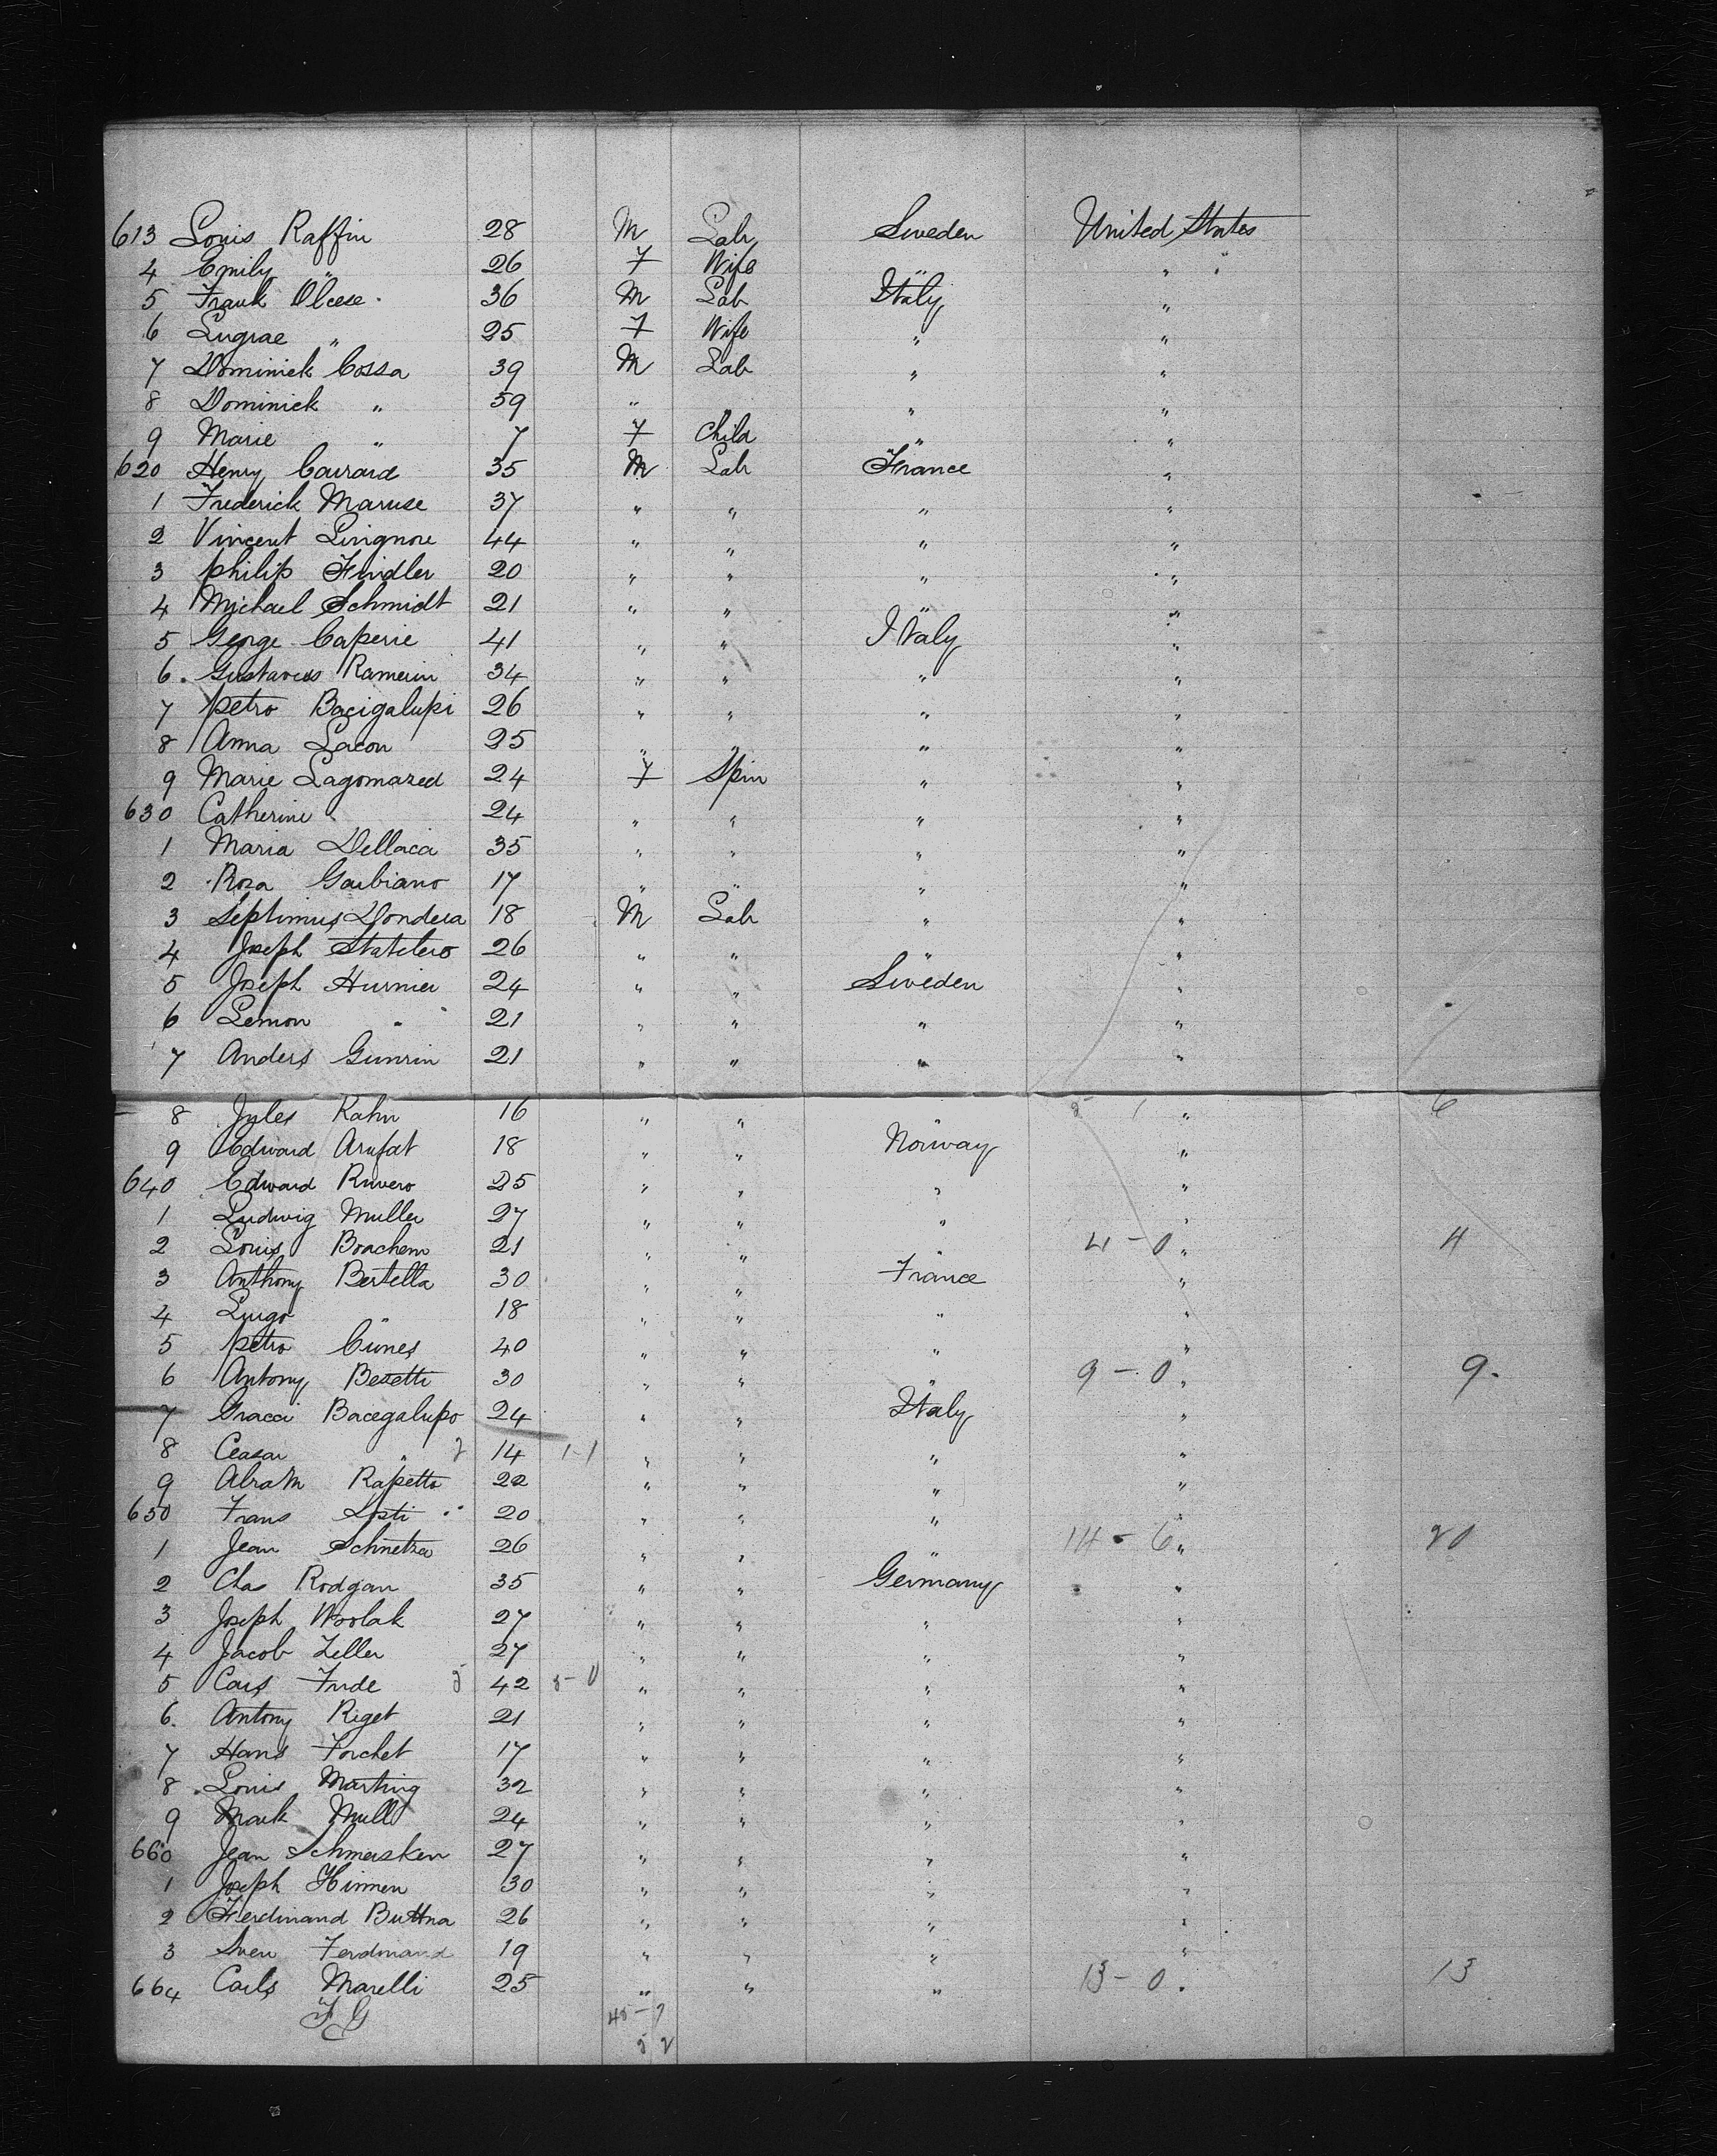 613 Louis Raffin 28 M Lab Sweden United States
4 Emily " 26 F Wife " "
5 Frank Olcese 36 M Lab Italy "
6 Lugrae " 25 F Wife " "
7 Dominick Cossa 39 M Lab " "
8 Dominick " 59 " " " "
9 Marie " 7 F Child " "
620 Henry Courard 35 M Lab France "
1 Frederick Maruse 37 " " " "
2 Vincent Livignore 44 " " " "
3 Philip Findler 20 " " " "
4 Michael Schmidt 21 " " " "
5 George Caperie 41 " " Italy "
6 Gustavus Ramerin 34 " " " "
7 Petro Bacigalupi 26 " " " "
8 Anna Lacon 25 " " " "
9 Marie Lagomazed 24 F Spin " "
630 Catherine 24 " " " "
1 Maria Dellaca 35 " " " "
2 Rosa Garbiano 17 " " " "
3 Septimus Dondera 18 M Lab " "
4 Joseph Statelero 26 " " " "
5 Joseph Hurnier 24 " " Sweden "
6 Lemon " 21 " " " "
7 Anders Gunrin 21 " " " "
8 Jules Kahn 16 " " " " 6
9 Edward Arufat 18 " " Norway "
640 Edward Ruvero 25 " " " "
1 Ludwig Muller 27 " " " "
2 Louis Boachem 21 " " " 4-0 " 4
3 Anthony Bertella 30 " " France "
4 Luigo " 18 " " " "
5 Petro Cunes 40 " " " "
6 Antony Bezetti 30 " " " 9-0 " 9.
7 Gracci Bacegalupo 24 " " Italy "
8 Ceasar " 2 14 1-1 " " " "
9 Abram Rapetto 22 " " " "
650 Frans Losti 20 " " " "
1 Jean Schnetza 26 " " " 14-6 " 20
2 Chas Rodgan 35 " " Germany "
3 Joseph Woolak 27 " " " "
4 Jacob Zeller 27 " " " "
5 Cars Frude 42 " " " "
6. Antony Riget 21 " " " "
7 Hans Forchet 17 " " " "
8 Louis Marting 32 " " " "
9 Mark Mull 24 " " " "
660 Jean Schmersken 27 " " " "
1 Joseph Hinmen 30 " " " "
2 Ferdinand Buttna 26 " " " "
3 Sven Ferdinand 19 " " " "
664 Carls Marelli 25 " " " 13-0 " 13